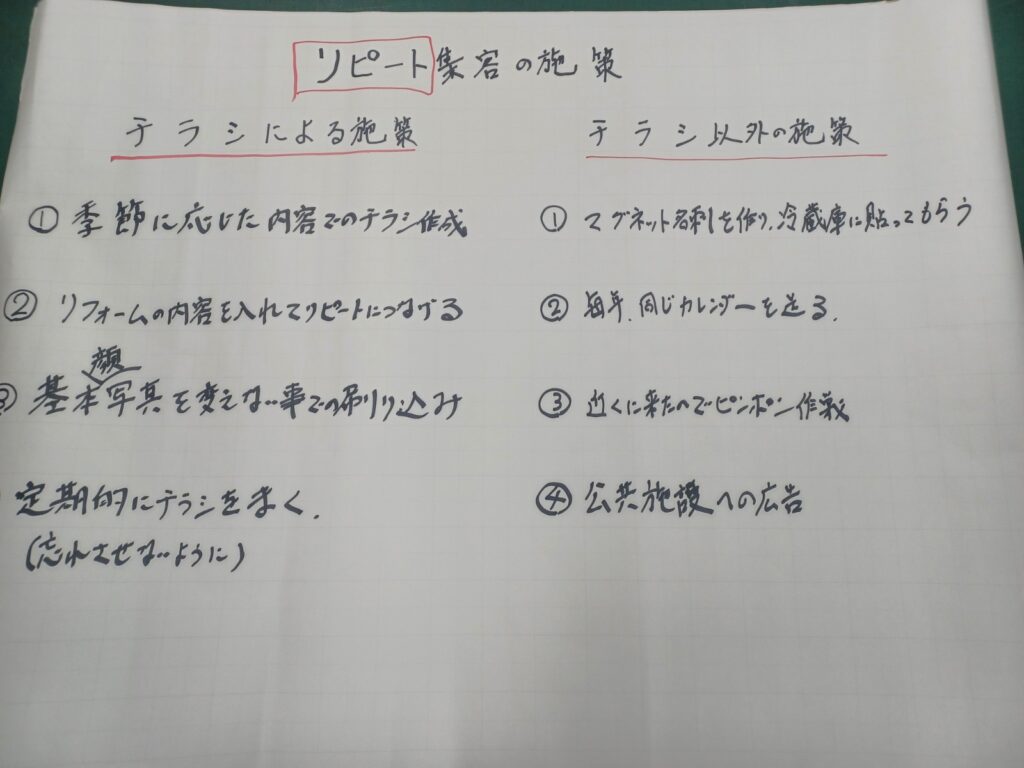 リピート集客の施策
チラシによる施策
① 季節に応じた内容でのチラシ作成
② リフォームの内容を入れてリピートにつなげる
顔
基本写真を変えない事での刷り込み
定期的にチラシをまく.
(忘れさせないように)
チラシ以外の施策
① マグネット名刺を作り、冷蔵庫に貼ってもらう
② 毎年、同じカレンダーを送る.
③ 近くに来たのでピンポン作戦
④ 公共施設への広告